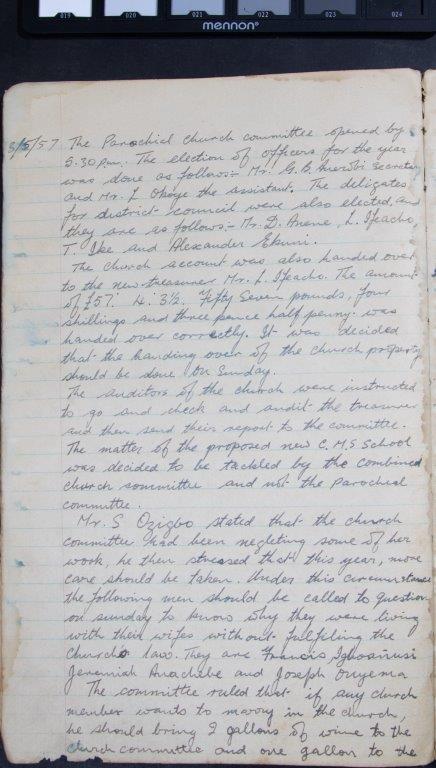 019 020 021 022 023 024
mennon
3/5/57 The Parochial Church committee opened by
5.30 p.m. The election of officers for the year
was done as follows:- Mr. G. B. secretary
and Mr. L Okoye the assistant. The deligates
for district council were also elected, and
they are as follows:- Mr. D. Anene, L. Ifeacho,
T. Ike and Alexander Ekwu.
The church account was also handed over
to the new treasurer Mr. L. Ifeacho. The amount
of £57. 4. 3½. Fifty Seven pounds, four
shillings and three pence half penny. was
handed over correctly. It was decided
that the handing over of the church property
should be done on Sunday.
The auditors of the church were instructed
to go and check and audit the treasurer
and then send their report to the committee.
The matter of the proposed new C.M.S School
was decided to be tackled by the combined
church committee and not the Parochial
committee.
Mr. S Ozigbo stated that the church
committee had been negleting some of her
work, he then stressed that this year, more
care should be taken. Under this circumstance
the following men should be called to question
on sunday to know why they were living
with their wifes without fulfiling the
church law. They are Francis
Jeremiah Anachebe and Joseph Onyema
The committee ruled that if any church
member wants to marry in the church,
he should bring 2 gallons of wine to the
church committee and one gallon to the